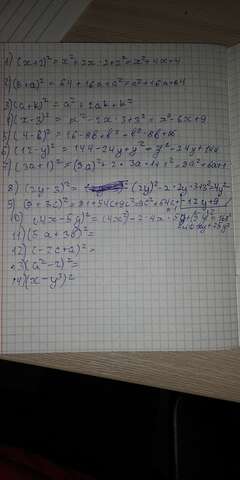 1) (x+2)² = x²+2x·2+2² = x²+4x+4
2) (8+a)² = 64+16a+a² = a²+16a+64
3) (a+b)² = a²+2ab+b²
4) (x-3)² = x²-2x·3+3² = x²-6x+9
5) (4-b)² = 16-8b+b² = b²-8b+16
6) (12-y)² = 144-24y+y² = y²-24y+144
7) (3a+1)² = (3a)²+2·3a·1+1² = 9a²+6a+1
8) (2y-3)² = (2y)²-2·2y·3+3²=4y²
-12y+9
9)
10) (4x-5y)² = (4x)²-2·4x·5y+(5y)²=16x²
11) (5a+3b)² =
12) (-2c+a)² =
13) (a²-2)² =
14) (x-y³)²